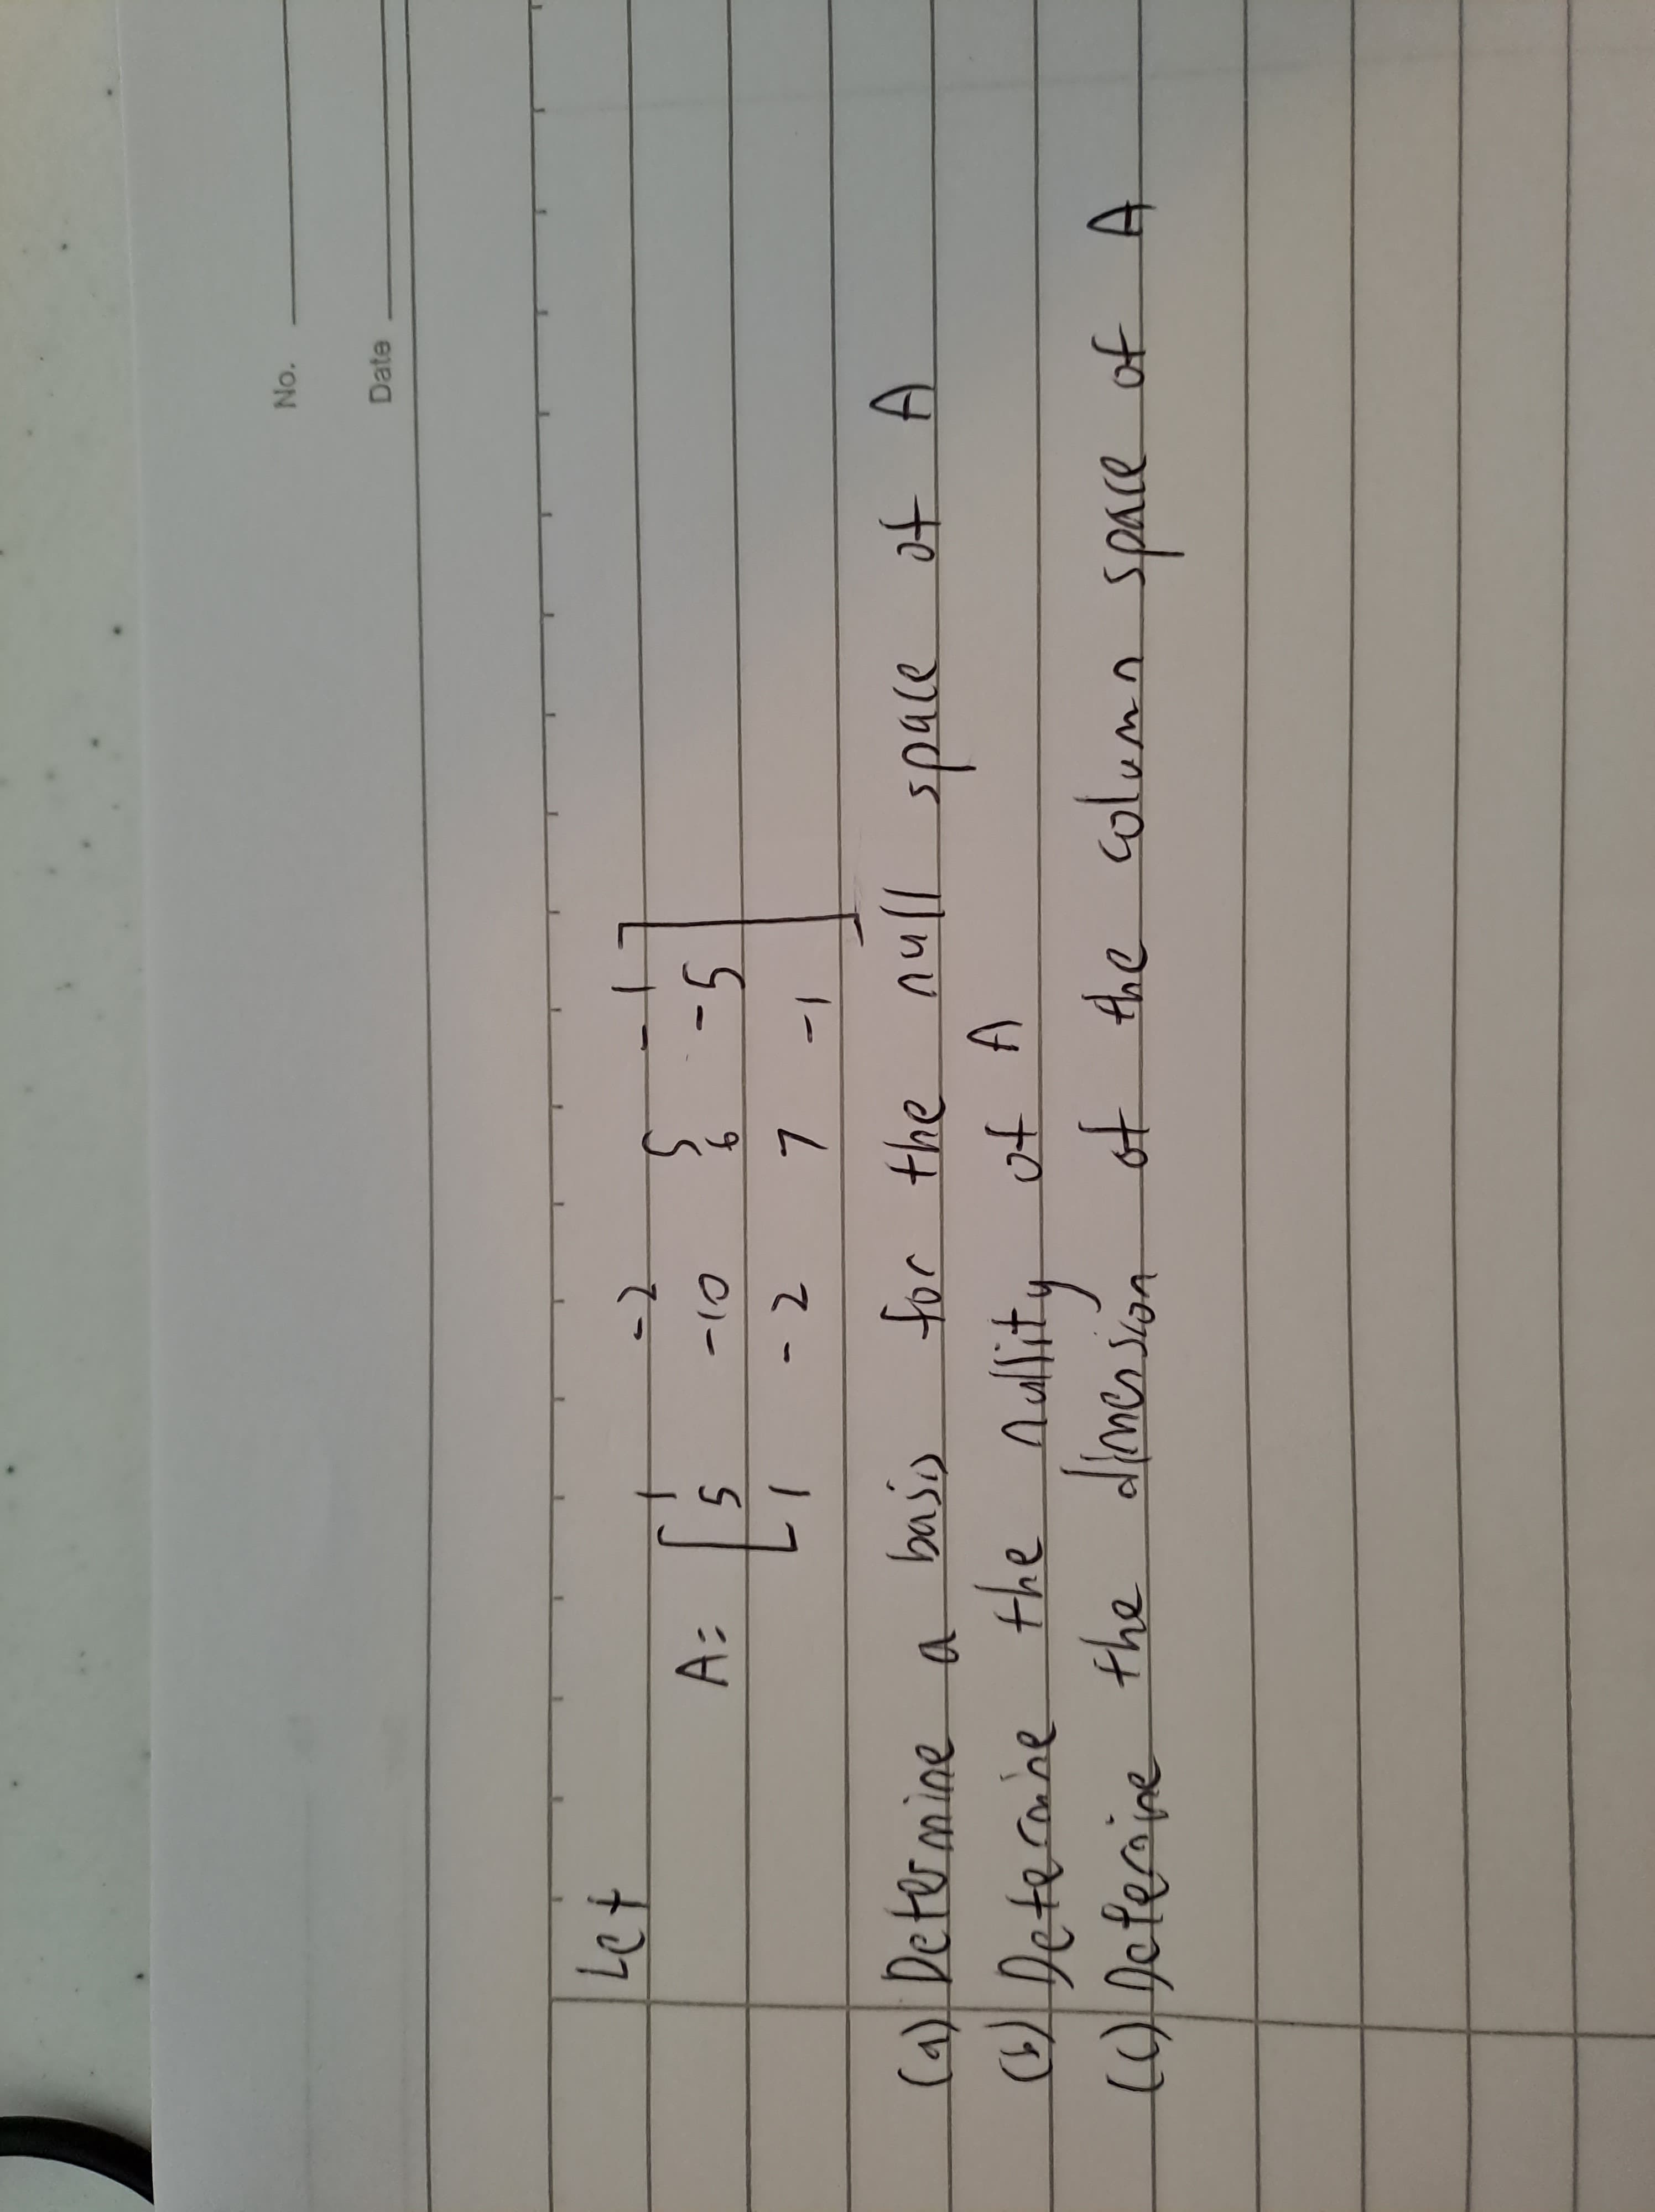 No.
Date
Let
1 -2 5 -1
A= [ 5 -10 6 -5 ]
1 -2 7 -1
(a) Determine a basis for the null space of A
(b) Determine the nullity of A
(c) Determine the dimension of the column space of A